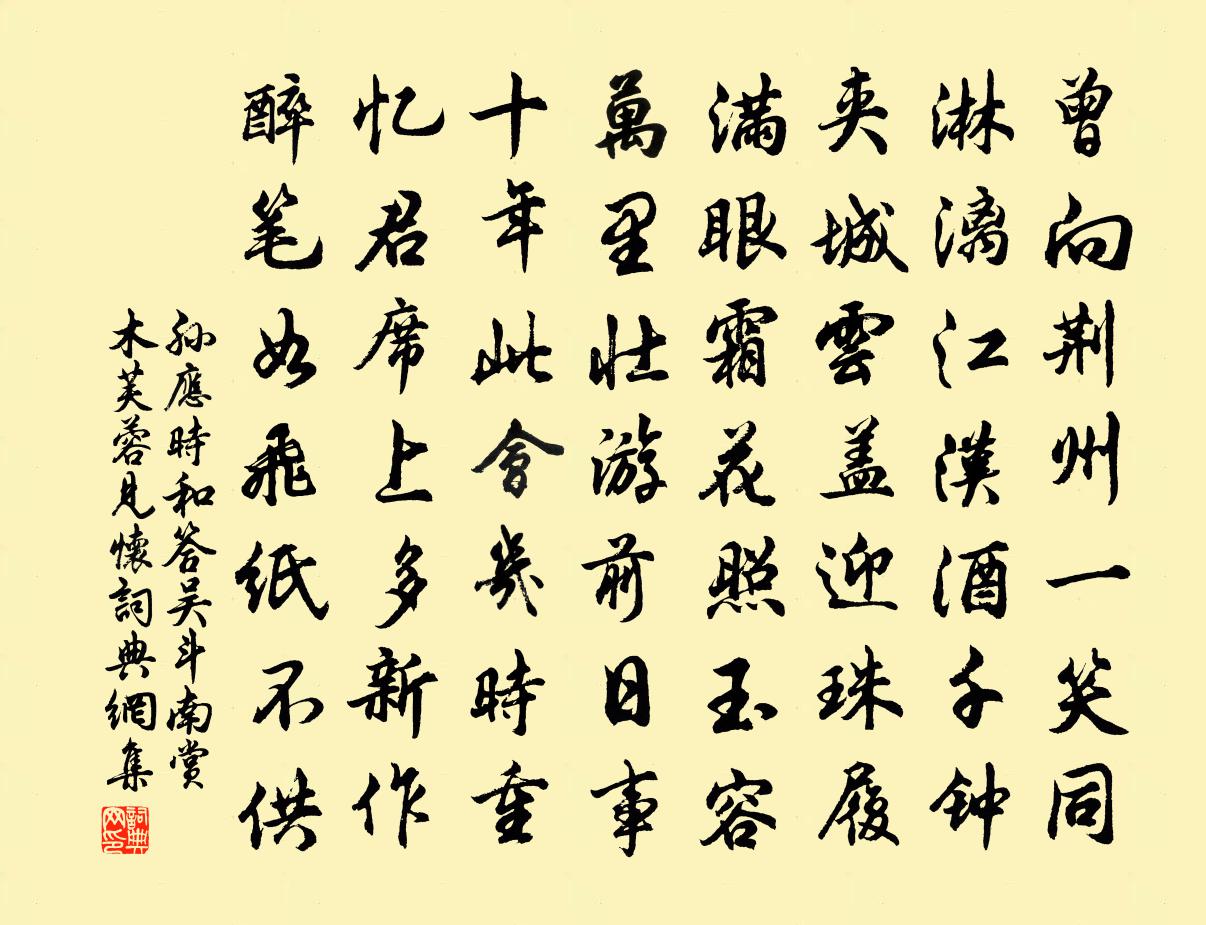 曾向荆州一笑同
淋漓江漢酒千钟
夾城雲盖迎珠履
满眼霜花照玉容
萬里壮游前日事
十年此會幾時重
忆君席上多新作
醉笔如飛紙不供
孙應時和答吴斗南赏
木芙蓉見懷詞典網集
詞典
网印